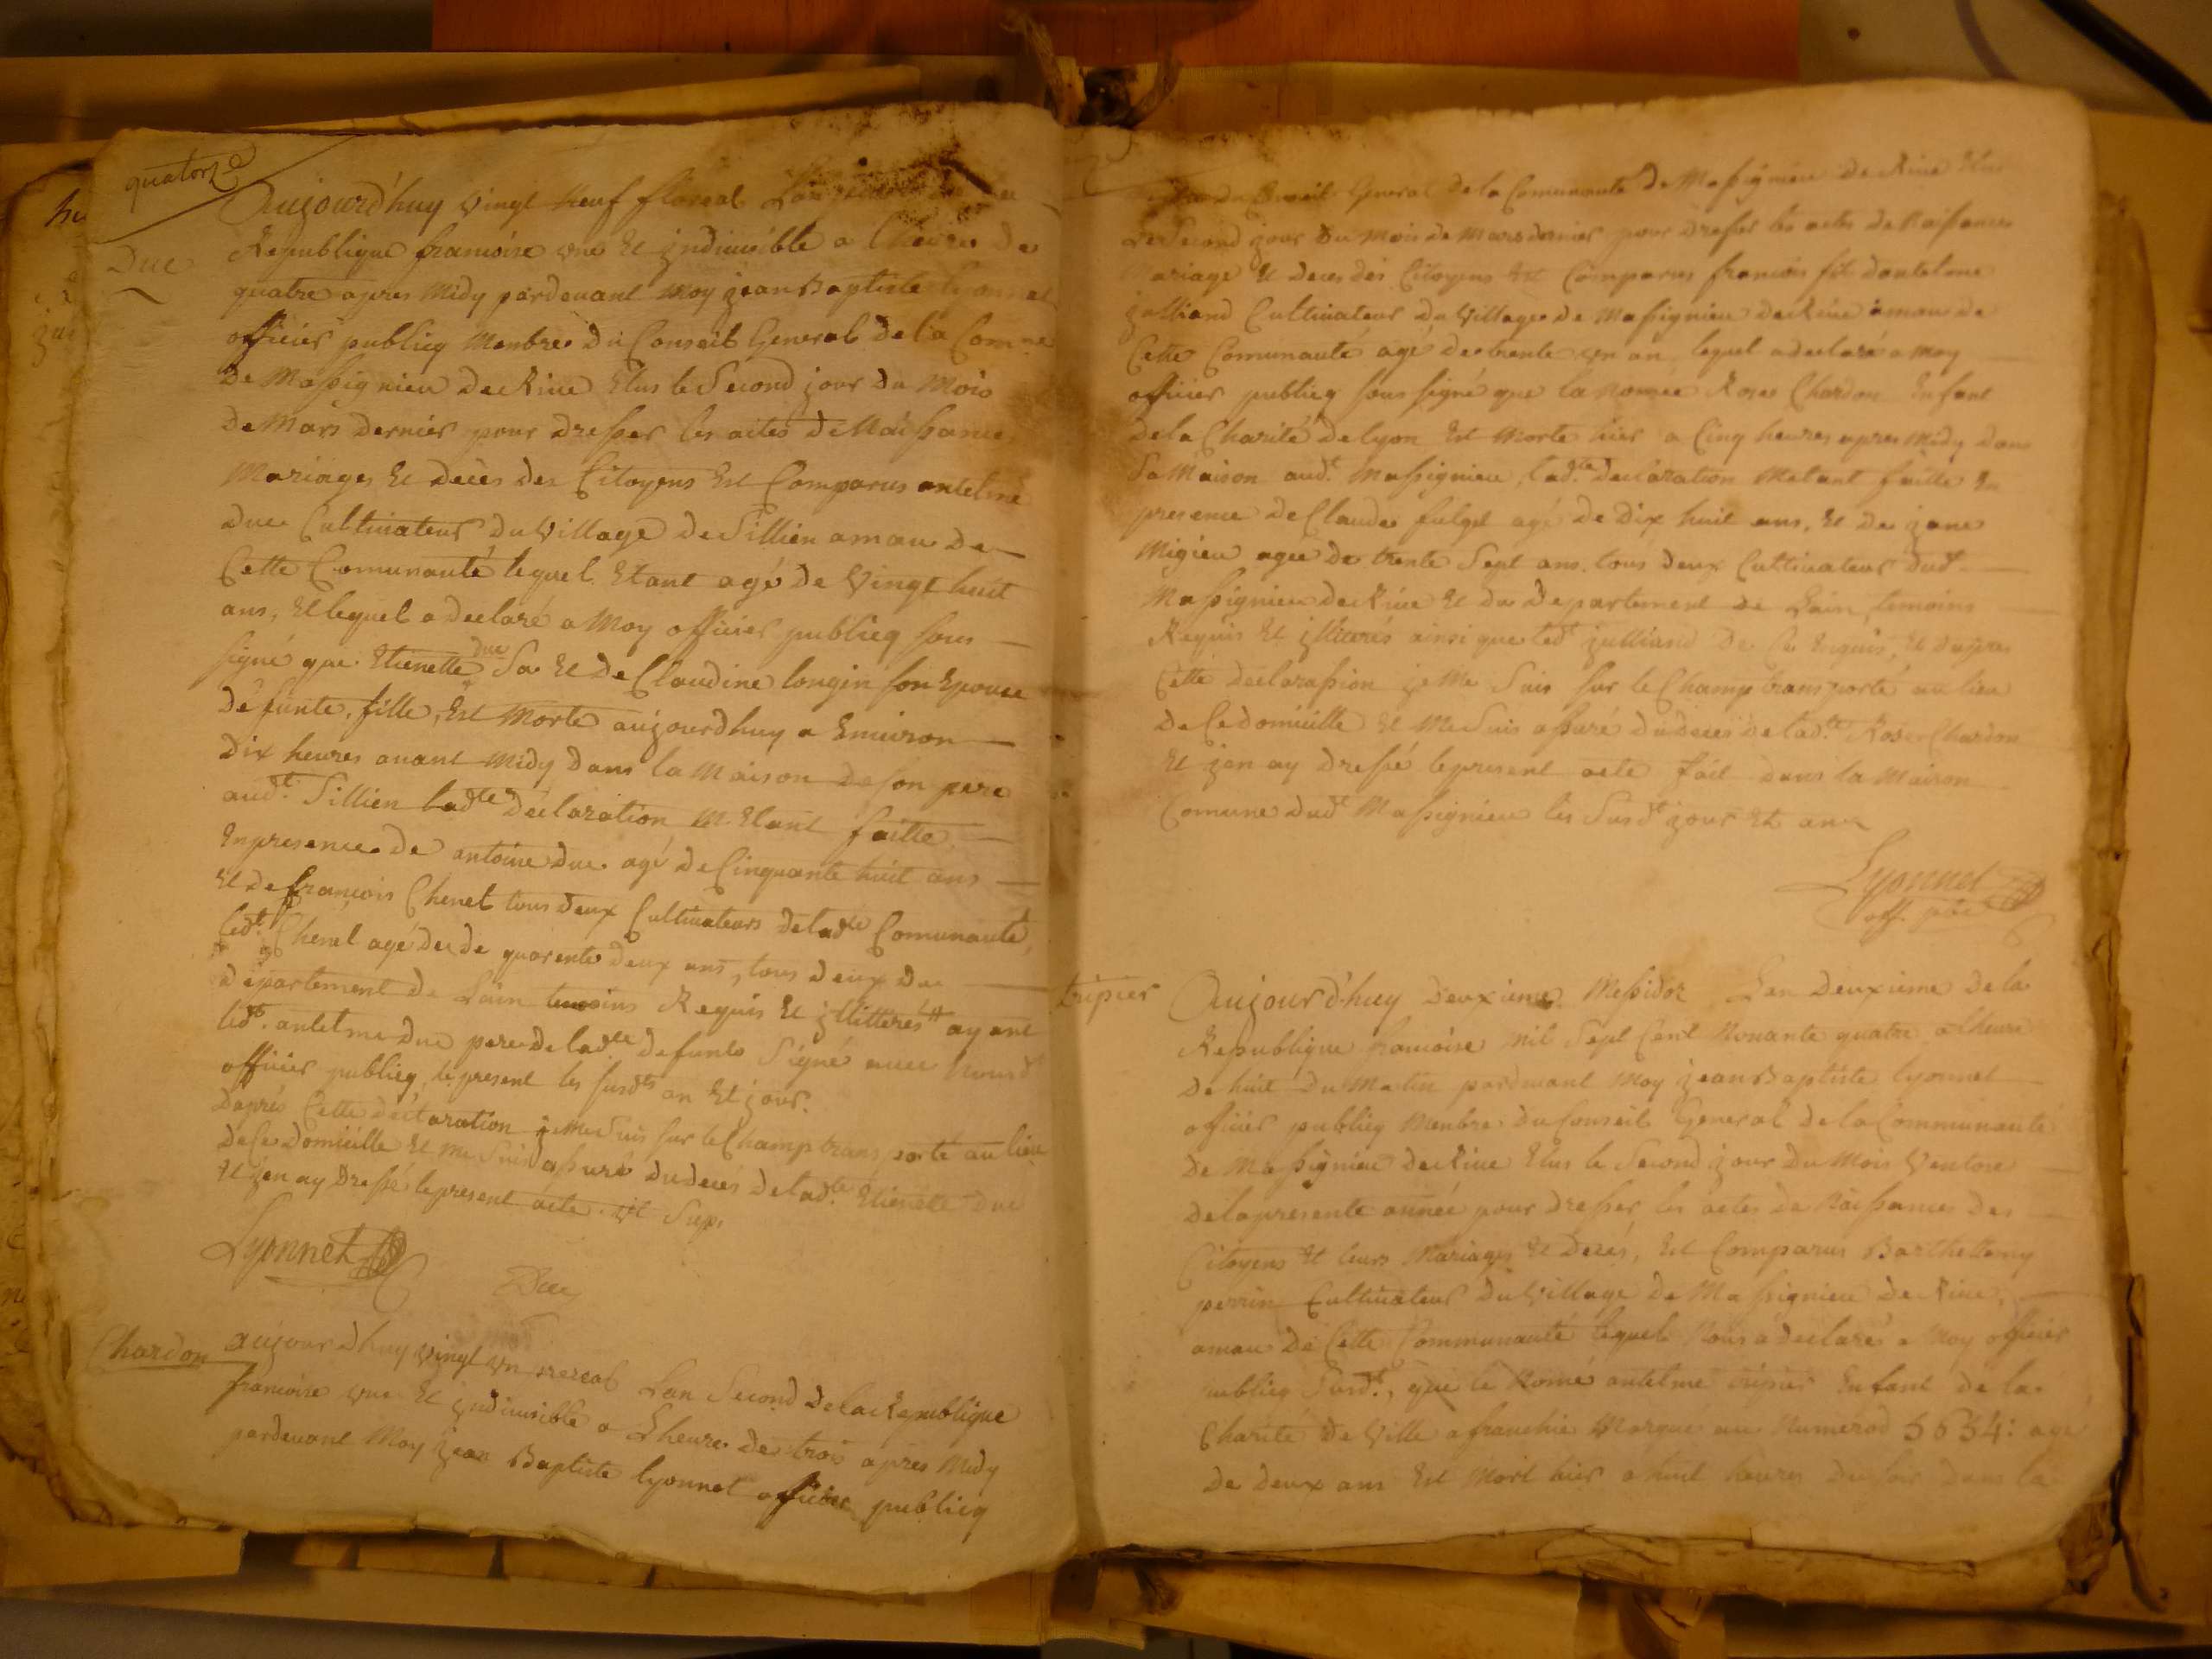 quatorze
Duc
Aujourd'huy vingt neuf floreal L'an
Republique francoise une Et jndiuisible a lheure de
quatre apres Midy pardeuant Moy jean Baptiste Lyonnet
officier publicq Menbre du Conseil General de la Com.ne
De Massignieu de Riue Elus le Second jour du Mois
De Mars dernier pour dresser les actes de Naissances
Mariages Et decès des Citoyens Est Comparus antelme
duc Cultiuateur du Village de Sillien amau de
Cette Comunauté lequel Etant agé de Vingt huit
ans, Et lequel a declaré a Moy officier publicq sous
signé que Etienette duc Sa Et de Claudine longin son Epouse
défunte, fille, Est Morte aujourdhuy a Enuiron
Dix heures auant Midy dans la Maison de son pere
aud.t Sillien lad.te déclaration M'Etant faitte
En presence de antoine duc agé de Cinquante huit ans
Et de françois Chenet tous deux Cultiuateurs de lad.te Comunauté,
led.t Chenet agé de de quarente deux ans, tous deux du
département de Lain temoins Requis Et jllitterés ayant
led.t antelme Duc pere de lad.te defunte Signé auec Nousd.t
officier publicq, le present les susd.ts an Et jour.
D'après Cette déclaration je Me Suis sur le Champ transporté au lieu
de Ce domicille Et me Suis assuré du decès de lad.te Etienette Duc
Et jen ay Dressé le present acte. Vt Sup.
Lyonnet
Duc
Chardon
aujourdhuy vingt vn prereal Lan Second de la Republique
francoise vne Et jndiuisible a Lheure de trois apres Midy
pardeuant Moy jean Baptiste lyonnet officier publicq
du Conseil General de la Comunauté de Massignieu de Riue Elus
Le Second jour du Mois de Mars dernier pour dresser les actes de Naissances
Mariage Et deces des Citoyens Est Comparus francois fils dantelme
julliand Cultiuateur du Village de Massignieu de Riue amau de
Cette Comunauté agé de trente vn an lequel a declaré a Moy
officier publicq sous signé que la Nomée Rose Chardon Enfant
de la Charité de lyon Est Morte hier a Cinq heures apres Midy dans
Sa Maison aud.t Massignieu, lad.te declaration Metant faitte En
presence de Claude agé de Dix huit ans, Et de jane
Migieu agée de trente Sept ans, tous deux Cultiuateur dud.t
Massignieu de Riue Et du Departement de Lain, temoins
Requis Et jlliterés ainsi que led.t julliand De Ce Enquis, Et dapres
Cette declarassion je Me Suis sur le Champ transporté au lieu
de Ce domicille Et Me Suis assuré du deces de lad.te Rose Chardon
Et jen ay dressé le present acte fait dans la Maison
Comune dud.t Massignieu les Susd.t jour Et an
Lyonnet
off. pbc
tripier
Aujourd'huy deuxieme Messidor Lan deuxieme de la
Republique francoise mil Sept Cent Nonante quatre a lheure
de huit du Matin pardeuant Moy jean Baptiste lyonnet
officier publicq Menbre du Conseil General de la Communauté
de Massignieu de Riue Elus le Second jour du Mois Ventose
de la presente année pour dresser les actes de Naissances des
Citoyens Et leurs Mariages Et decés, Est Comparus Barthellemy
perrin Cultiuateur du Village de Massignieu de Riue,
amau de Cette Communauté lequel Nous a declaré a Moy officier
publicq Susd.t, que le Nomé antelme tripier Enfant de la
Charité de Ville afranchie Marqué au Numeros 5634: agé
de deux ans Est Mort hier a huit heures du soir dans la